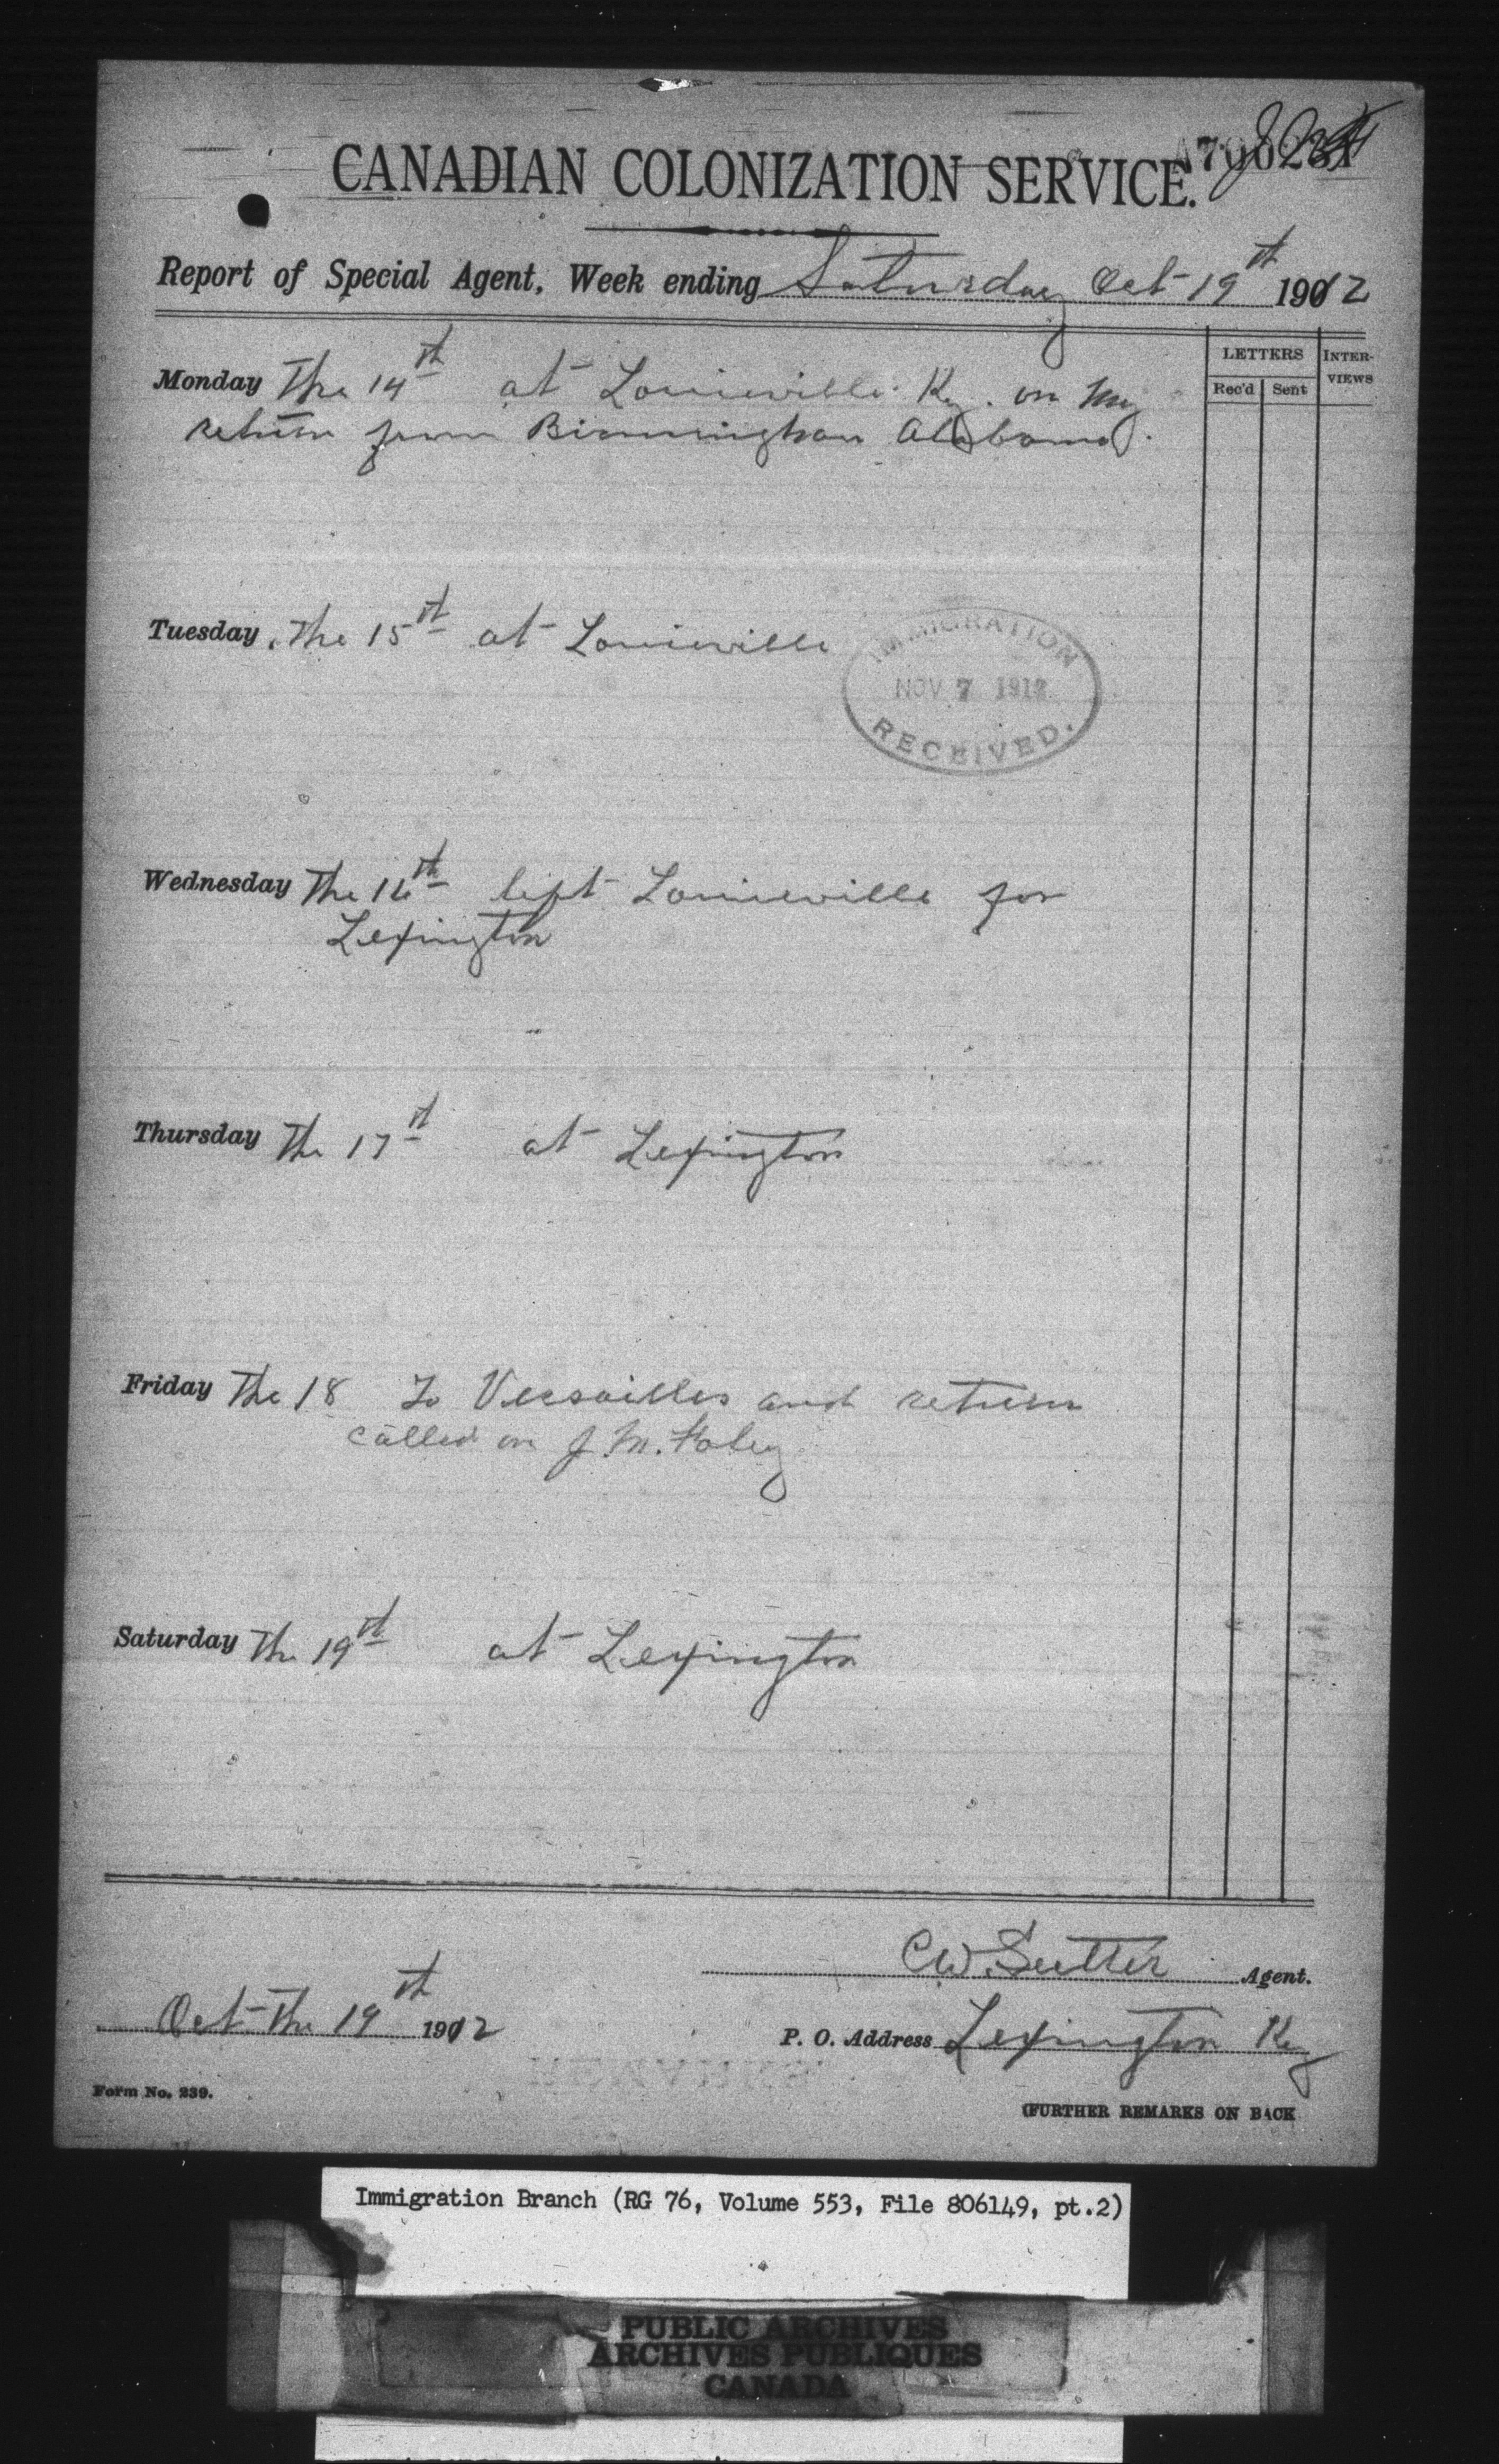 CANADIAN COLONIZATION SERVICE.
Report of Special Agent, Week ending Saturday Oct 19th 1912
LETTERS
INTER-
VIEWS
Rec'd Sent
Monday The 14th at Louieville Ky. on my
return from Birmingham Alabama.
Tuesday, The 15th at Louieville
IMMIGRATION
NOV 7 1912
RECEIVED.
Wednesday The 16th left Louieville for
Lexington
Thursday The 17th at Lexington
Friday The 18 To Versailles and return
called on J. M. Foley
Saturday The 19th at Lexington
C.W. Sutter Agent.
Oct The 19th 1912
P. O. Address Lexington Ky
Form No. 239.
(FURTHER REMARKS ON BACK
Immigration Branch (RG 76, Volume 553, File 806149, pt.2)
PUBLIC ARCHIVES
ARCHIVES PUBLIQUES
CANADA